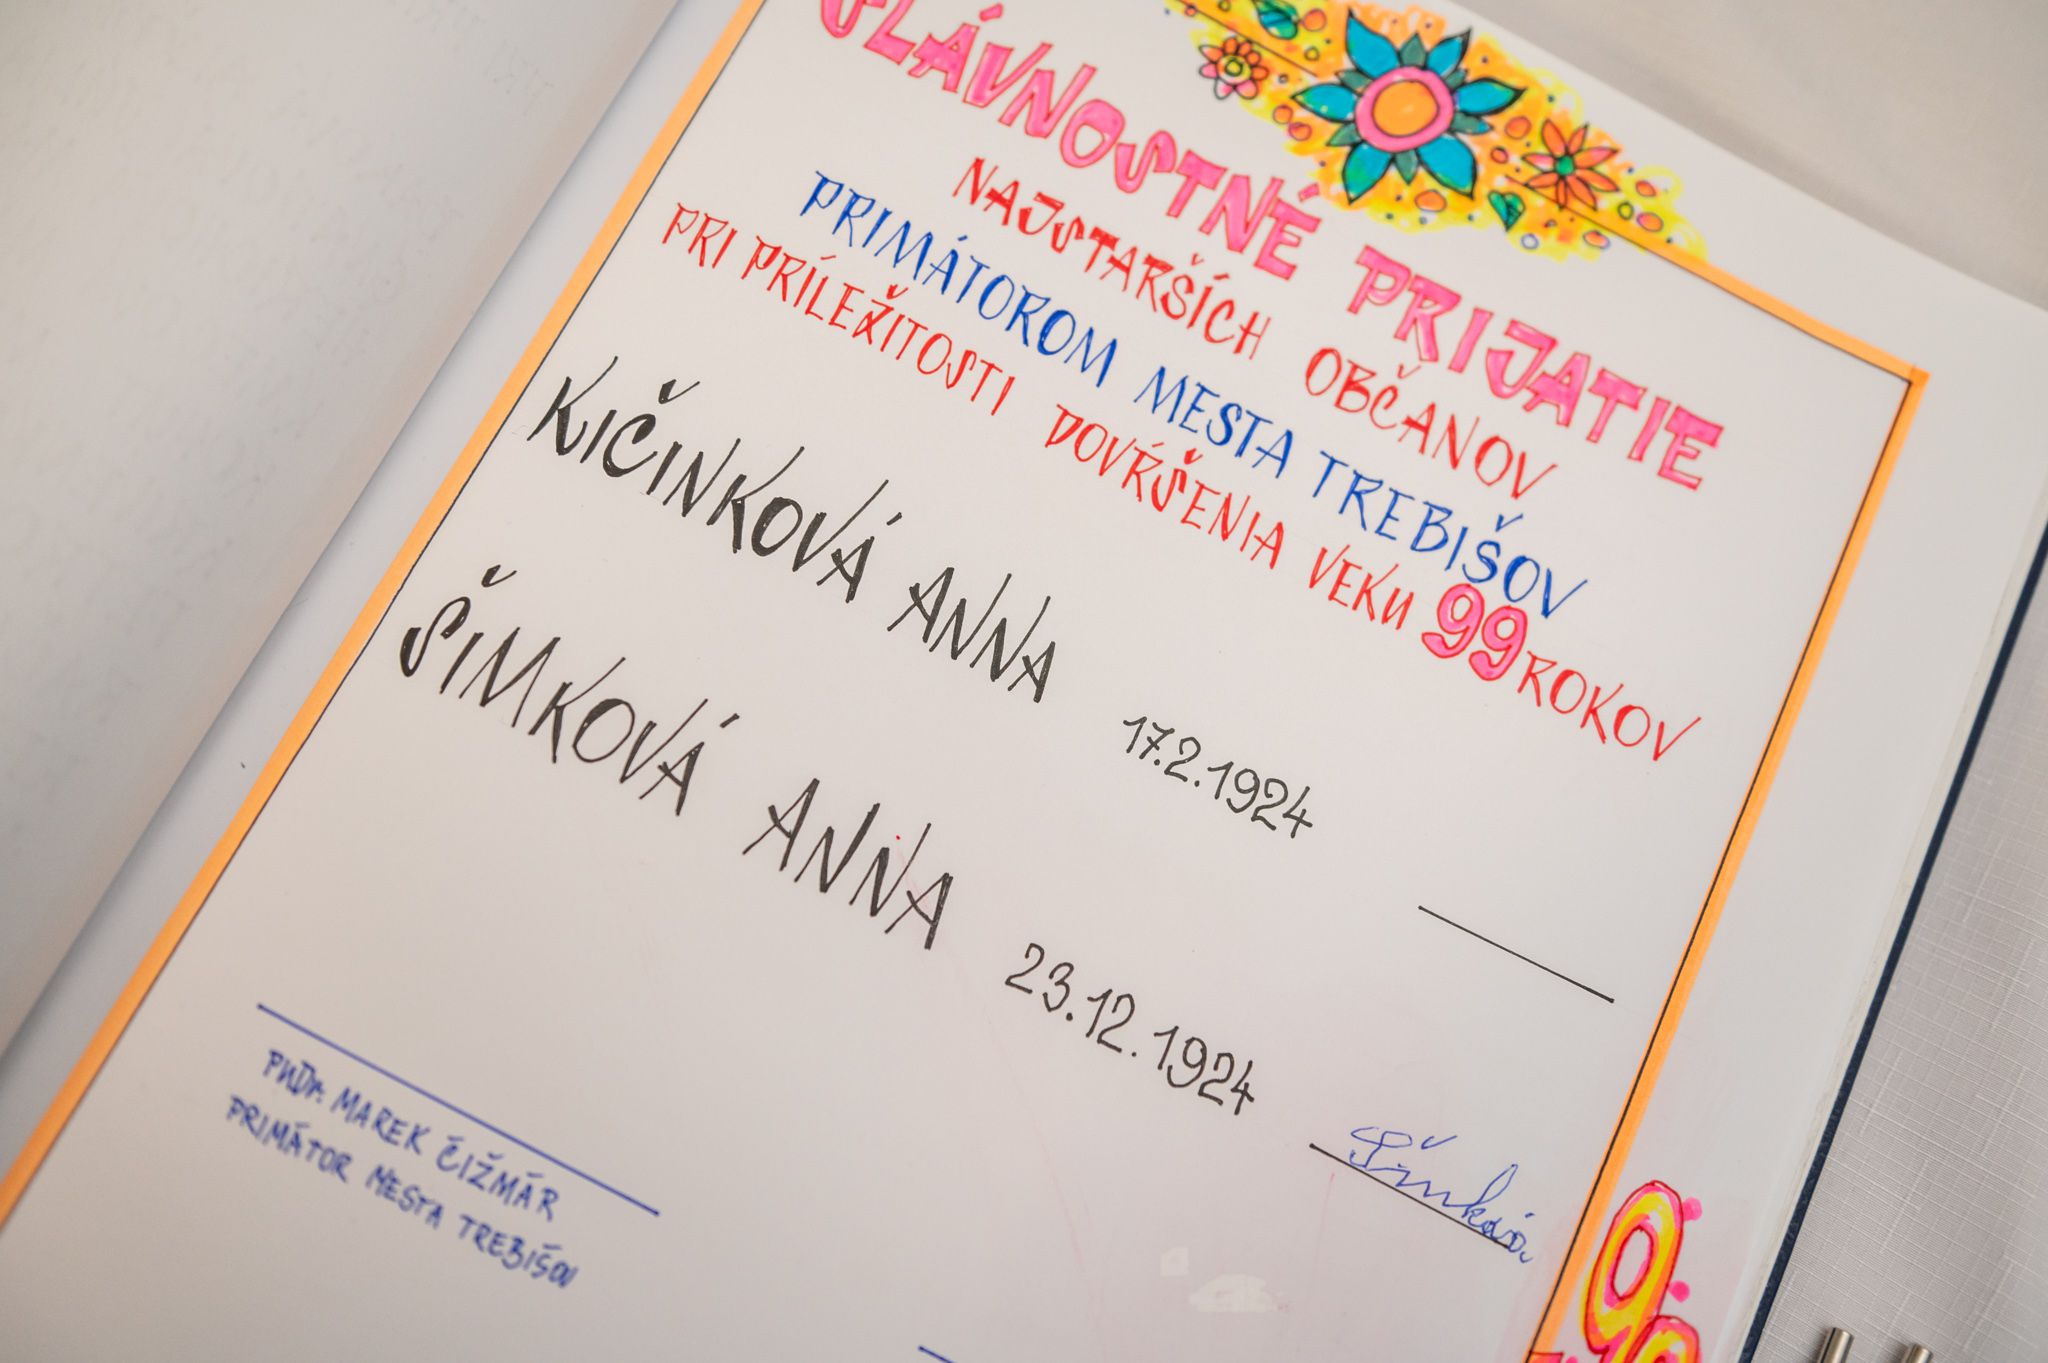 SLÁVNOSTNÉ PRIJATIE
NAJSTARŠÍCH OBČANOV
PRIMÁTOROM MESTA TREBIŠOV
PRI PRÍLEŽITOSTI DOVŔŠENIA VEKU 99 ROKOV
KIČINKOVÁ ANNA 17.2.1924
ŠIMKOVÁ ANNA 23.12.1924
Šimková
PhDr. MAREK ČIŽMÁR
PRIMÁTOR MESTA TREBIŠOV
99